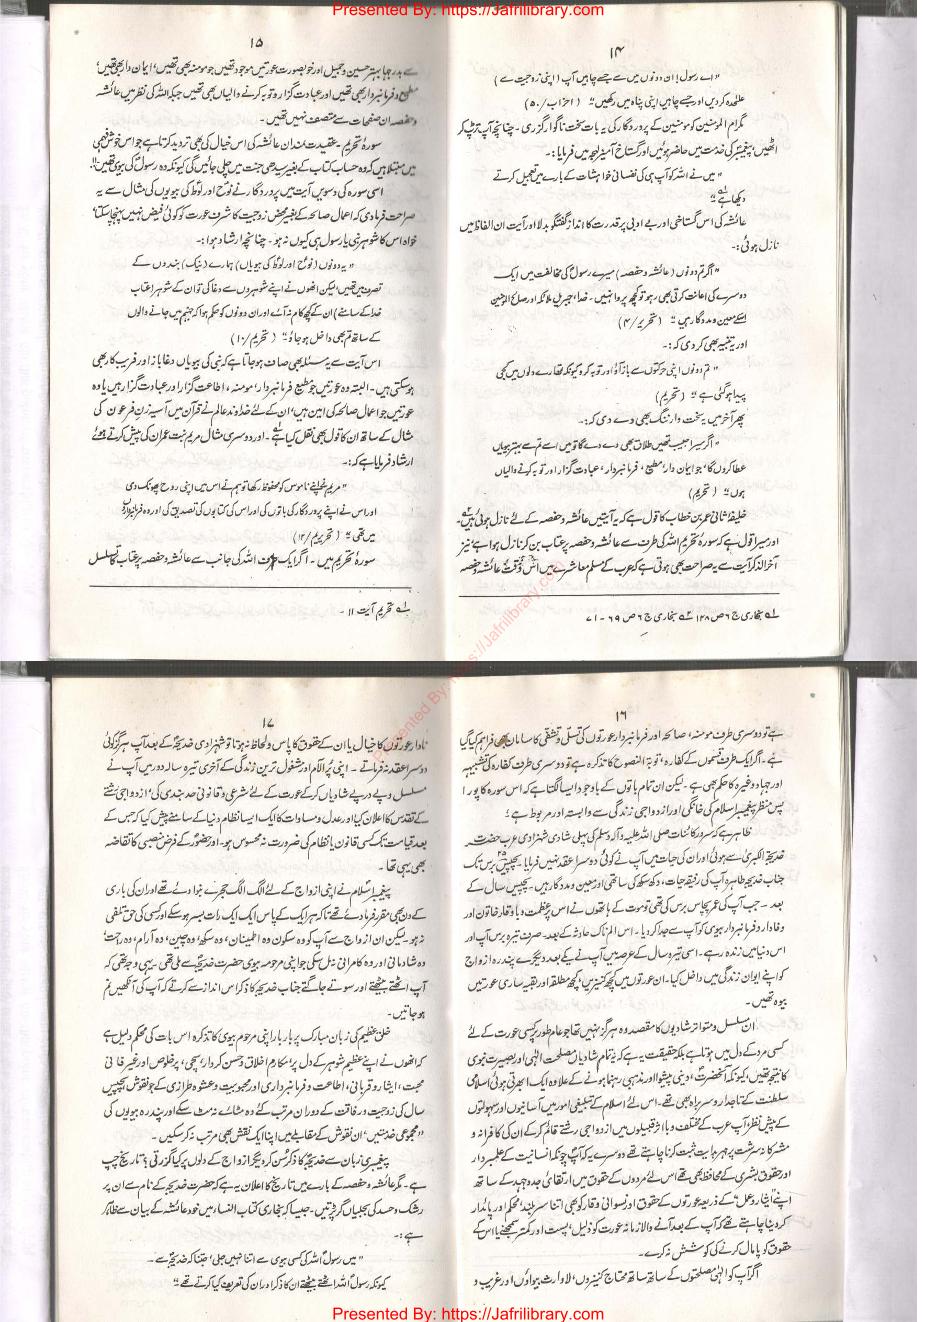 Presented By: https://Jafrilibrary.com
۱۴
"اے رسول! ان دونوں میں سے جسے چاہیں آپ (اپنی زوجیت سے)
علیحدہ کر دیں اور جسے چاہیں اپنی پناہ میں رکھیں" (احزاب/۵۰)
مگر ام المومنین کو مومنین کے پروردگار کی یہ بات سخت ناگوار گزری۔ چنانچہ آپ تڑپ کر
اٹھیں، پیغمبرؐ کی خدمت میں حاضر ہوئیں اور گستاخ آمیز لہجہ میں فرمایا:۔
"میں نے اللہ کو آپ ہی کی نفسانی خواہشات کے بارے میں تعجیل کرتے
دیکھا ہے"
عائشہ کی اس گستاخی اور بے ادبی پر قدرت کا انداز گفتگو بدلا اور آیت ان الفاظ میں
نازل ہوئی:۔
"اگر تم دونوں (عائشہ و حفصہ) میرے رسولؐ کی مخالفت میں ایک
دوسرے کی اعانت کرتی بھی رہو تو کچھ پروا نہیں۔ خدا، جبریل، ملائکہ اور صالح المومنین
اسکے معین و مددگار ہیں" (تحریم/۴)
اور یہ تنبیہ بھی کر دی کہ:۔
"تم دونوں اپنی حرکتوں سے باز آؤ اور توبہ کرو کیونکہ تمھارے دلوں میں کجی
پیدا ہو گئی ہے" (تحریم)
پھر آخر میں یہ سخت وارننگ بھی دے دی کہ:۔
"اگر میرا حبیب تمھیں طلاق بھی دے دے گا تو میں اسے تم سے بہتر بیویاں
عطا کروں گا، جو ایمان دار، مطیع، فرمانبردار، عبادت گزار اور توبہ کرنے والیاں
ہوں" (تحریم)
خلیفۂ ثانی عمر بن خطاب کا قول ہے کہ یہ آیتیں عائشہ و حفصہ کے لئے نازل ہوئی ہیں۔
اور میرا قول ہے کہ سورۂ تحریم اللہ کی طرف سے عائشہ و حفصہ پر عتاب بن کر نازل ہوا ہے، نیز
آخر الذکر آیت سے یہ صراحت بھی ہوتی ہے کہ عرب کے مسلم معاشرے میں اس وقت عائشہ و حفصہ
۱ے بخاری ج ۶ ص ۱۴۸ ۲ے بخاری ج ۶ ص ۶۹ - ۷۱
۱۵
سے بدرجہا بہتر حسین و جمیل اور خوبصورت عورتیں موجود تھیں جو مومنہ بھی تھیں، ایمان دار بھی تھیں،
مطیع و فرمانبردار بھی تھیں اور عبادت گزار و توبہ کرنے والیاں بھی تھیں جبکہ اللہ کی نظر میں عائشہ
و حفصہ ان صفات سے متصف نہیں تھیں۔
سورۂ تحریم۔ عقیدت مندان عائشہ کی اس خیال کی بھی تردید کرتا ہے جو اس خوش فہمی
میں مبتلا ہیں کہ وہ حساب کتاب کے بغیر سیدھی جنت میں چلی جائیں گی کیونکہ وہ رسولؐ کی بیوی تھیں۔"
اسی سورہ کی دسویں آیت میں پروردگار نے نوحؑ اور لوطؑ کی بیویوں کی مثال سے یہ
صراحت فرما دی کہ اعمال صالحہ کے بغیر محض زوجیت کا شرف عورت کو کوئی فیض نہیں پہنچا سکتا،
خواہ اس کا شوہر نبی یا رسول ہی کیوں نہ ہو۔ چنانچہ ارشاد ہوا:۔
"یہ دونوں (نوحؑ اور لوطؑ کی بیویاں) ہمارے (نیک) بندوں کے
تصرف میں تھیں، لیکن انھوں نے اپنے شوہروں سے دغا کی تو ان کے شوہر (عتاب
خدا کے سامنے) ان کے کچھ کام نہ آئے اور ان دونوں کو حکم ہوا کہ جہنم میں جانے والوں
کے ساتھ تم بھی داخل ہو جاؤ" (تحریم/۱۰)
اس آیت سے یہ مسئلہ بھی صاف ہو جاتا ہے کہ نبی کی بیویاں دغا باز اور فریب کار بھی
ہو سکتی ہیں۔ البتہ وہ عورتیں جو مطیع، فرمانبردار، مومنہ، اطاعت گزار اور عبادت گزار ہیں یا وہ
عورتیں جو اعمال صالحہ کی امین ہیں، ان کے لئے خداوند عالم نے قرآن میں آسیہ زن فرعون کی
مثال کے ساتھ ان کا قول بھی نقل کیا ہے۔ اور دوسری مثال مریم بنت عمران کی پیش کرتے ہوئے
ارشاد فرمایا ہے کہ:۔
"مریم نے اپنے ناموس کو محفوظ رکھا تو ہم نے اس میں اپنی روح پھونک دی
اور اس نے اپنے پروردگار کی باتوں کی اور اس کی کتابوں کی تصدیق کی اور وہ فرمانبرداروں
میں تھی" (تحریم/۱۲)
سورۂ تحریم میں۔ اگر ایک طرف اللہ کی جانب سے عائشہ و حفصہ پر عتاب کا تسلسل
۱ے تحریم آیت ۱۱۔
۱۶
ہے تو دوسری طرف مومنہ، صالحہ اور فرمانبردار عورتوں کی تسلی و تشفی کا سامان بھی فراہم کیا گیا
ہے۔ اگر ایک طرف قسموں کے کفارہ، توبۃ النصوح کا تذکرہ ہے تو دوسری طرف کفارہ کی تشبیہہ
اور جہاد وغیرہ کا حکم بھی ہے۔ لیکن ان تمام باتوں کے باوجود ایسا لگتا ہے کہ اس سورہ کا پورا
پس منظر پیغمبر اسلام کی خانگی اور ازدواجی زندگی سے وابستہ اور مربوط ہے؛
ظاہر ہے کہ سرور کائنات صلی اللہ علیہ و آلہ وسلم کی پہلی شادی شہزادی عرب حضرت
خدیجۃ الکبریٰ سے ہوئی اور ان کی حیات میں آپ نے کوئی دوسرا عقد نہیں فرمایا۔ پچیس ۲۵ برس تک
جناب خدیجہ طاہرہ آپ کی رفیقۂ حیات، دکھ سکھ کی ساتھی اور معین و مددگار رہیں۔ پچیس سال کے
بعد۔ جب آپ کی عمر پچاس برس کی تھی تو موت کے ہاتھوں نے اس پر عظمت و باوقار خاتون اور
وفادار و فرمانبردار بیوی کو آپ سے جدا کر دیا۔ اس المناک حادثہ کے بعد۔ صرف تیرہ برس آپ اور
اس دنیا میں زندہ رہے۔ اسی تیرہ سال کے عرصہ میں آپ نے یکے بعد دیگرے پندرہ ازواج
کو اپنے ایوان زندگی میں داخل کیا۔ ان عورتوں میں کچھ کنیزیں، کچھ مطلقہ اور بقیہ ساری عورتیں
بیوہ تھیں۔
ان مسلسل و متواتر شادیوں کا مقصد وہ ہرگز نہیں تھا جو عام طور پر کسی عورت کے لئے
کسی مرد کے دل میں ہوتا ہے بلکہ حقیقت یہ ہے کہ یہ تمام شادیاں مصلحت الٰہی اور بصیرت نبوی
کا نتیجہ تھیں، کیونکہ آنحضرتؐ، دینی پیشوا اور مذہبی رہنما ہونے کے علاوہ ایک ابھرتی ہوئی اسلامی
سلطنت کے تاجدار و سربراہ بھی تھے۔ اس لئے اسلام کے تبلیغی امور میں آسانیوں اور سہولتوں
کے پیش نظر آپ عرب کے مختلف و بااثر قبیلوں میں ازدواجی رشتے قائم کر کے ان کی کافرانہ و
مشرکانہ سرشت پر مہر ہدایت ثبت کرنا چاہتے تھے دوسرے یہ کہ آپ چونکہ انسانیت کے علمبردار
اور حقوق بشری کے محافظ بھی تھے اس لئے مردوں کے حقوق میں ارتقائی جدوجہد کے ساتھ
اپنے "ایثار و عمل" کے ذریعہ عورتوں کے حقوق اور نسوانی وقار کو بھی اتنا سربلند، محکم اور پائدار
کر دینا چاہتے تھے کہ آپ کے بعد آنے والا زمانہ عورت کو ذلیل، پست اور کمتر سمجھنے یا اس کے
حقوق کو پامال کرنے کی کوشش نہ کرے۔
اگر آپ کو الٰہی مصلحتوں کے ساتھ ساتھ محتاج کنیزوں، لاوارث بیواؤں اور غریب و
۱۷
نادار عورتوں کا خیال یا ان کے حقوق کا پاس و لحاظ نہ ہوتا تو شہزادی خدیجہؑ کے بعد آپ ہرگز کوئی
دوسرا عقد نہ فرماتے۔ اپنی پر آلام اور مشغول ترین زندگی کے آخری تیرہ سالہ دور میں آپ نے
مسلسل و پے در پے شادیاں کر کے عورت کے لئے شرعی و قانونی حد بندی کی، ازدواجی رشتے
کے تقدس کا اعلان کیا اور عدل و مساوات کا ایک ایسا نظام دنیا کے سامنے پیش کیا کہ جس کے
بعد قیامت تک کسی قانون یا نظام کی ضرورت نہ محسوس ہو۔ اور حضورؐ کے فرض منصبی کا تقاضہ
بھی یہی تھا۔
پیغمبر اسلام نے اپنی ازواج کے لئے الگ الگ حجرے بنوا دئے تھے اور ان کی باری
کے دن بھی مقرر فرما دئے تھے تاکہ ہر ایک کے پاس ایک ایک رات بسر ہو سکے اور کسی کی حق تلفی
نہ ہو۔ لیکن ان ازواج سے آپ کو وہ سکون وہ اطمینان، وہ سکھ، وہ چین، وہ آرام، وہ راحت،
وہ شادمانی اور وہ کامرانی نہ مل سکی جو اپنی مرحومہ بیوی حضرت خدیجہؑ سے ملی تھی۔ یہی وجہ تھی کہ
آپ اٹھتے بیٹھتے اور سوتے جاگتے جناب خدیجہ کا ذکر اس انداز سے کرتے کہ آپ کی آنکھیں نم
ہو جاتیں۔
خلق عظیم کی زبان مبارک پر بار بار اپنی مرحوم بیوی کا تذکرہ اس بات کی محکم دلیل ہے
کہ انھوں نے اپنے عظیم شوہر کے دل پر، مکارم اخلاق، حسن کردار، سچی، پر خلوص اور غیر فانی
محبت، ایثار و قربانی، اطاعت و فرمانبرداری اور محبوبیت و عشوہ طرازی کے جو نقوش پچیس
سال کی زوجیت و رفاقت کے دوران مرتب کئے وہ مٹائے نہ مٹ سکے اور پندرہ بیویوں کی
"مجموعی خدمتیں" ان نقوش کے مقابلے میں اپنا ایک نقش بھی مرتب نہ کر سکیں۔
پیغمبر کی زبان سے خدیجہ کا ذکر سن کر دیگر ازواج کے دلوں پر کیا گزرتی؟ تاریخ چپ
ہے۔ مگر عائشہ و حفصہ کے بارے میں تاریخ کا اعلان یہ ہے کہ حضرت خدیجہ کے نام سے ان پر
رشک و حسد کی بجلیاں گر پڑتیں۔ جیسا کہ بخاری کتاب النساء میں خود عائشہ کے بیان سے ظاہر
ہے:۔
"میں رسولؐ اللہ کی کسی بیوی سے اتنا نہیں جلی، جتنا کہ خدیجہؑ سے۔
کیونکہ رسولؐ اللہ اٹھتے بیٹھتے ان کا ذکر اور ان کی تعریف کیا کرتے تھے"
Presented By: https://Jafrilibrary.com
Presented By: https://Jafrilibrary.com